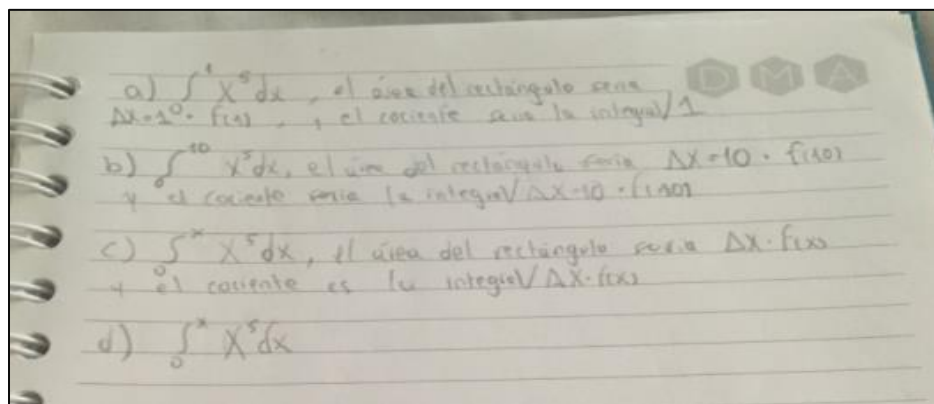 a) ∫₀¹ X⁵dx, el área del rectángulo seria
ΔX=1 · f(1), , el cociente seria la integral/1
b) ∫₀¹⁰ X⁵dx, el área del rectángulo seria ΔX=10 · f(10)
y el cociente seria la integral/ΔX=10 · f(10)
c) ∫₀ˣ X⁵dx, el área del rectángulo seria ΔX·f(x)
y el cociente es la integral/ΔX·f(x)
d) ∫₀ˣ X⁵dx
DMA